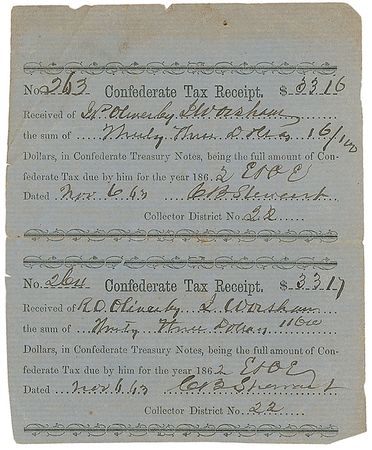 No. 263 Confederate Tax Receipt. $ 33 16
Received of J P Oliver by J Worsham
the sum of Thirty Three Dollars 16/100
Dollars, in Confederate Treasury Notes, being the full amount of Con-
federate Tax due by him for the year 1862
Dated Nov 6 63 C B Stewart
Collector District No. 22
No. 264 Confederate Tax Receipt. $ 33 17
Received of R O Oliver by J. Worsham
the sum of Thirty Three Dollars
Dollars, in Confederate Treasury Notes, being the full amount of Con-
federate Tax due by him for the year 1862
Dated Nov 6 63 C B Stewart
Collector District No. 22